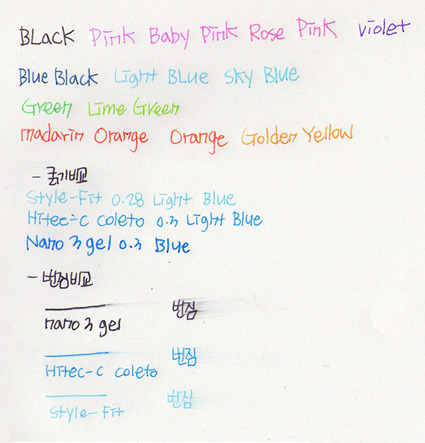 BLack Pink Baby Pink Rose Pink violet
Blue Black Light BLue sky Blue
Green Lime Green
madarin Orange Orange Golden Yellow
- 굵기비교
Style-Fit 0.28 Light Blue
Hitec-C coleto 0.3 Light Blue
Nano 3 gel 0.3 Blue
- 번짐비교
nano 3 gel 번짐
Hitec-C coleto 번짐
Style-Fit 번짐